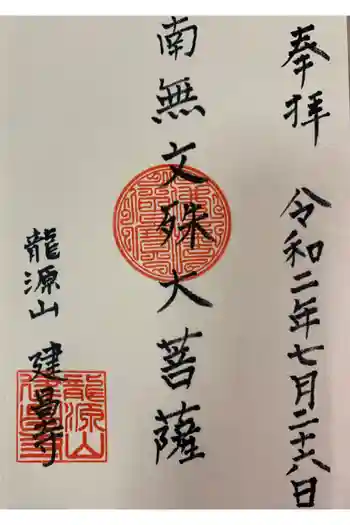 奉拝 令和二年七月二十六日
南無文殊大菩薩
龍源山 建昌寺
龍源山
建昌寺